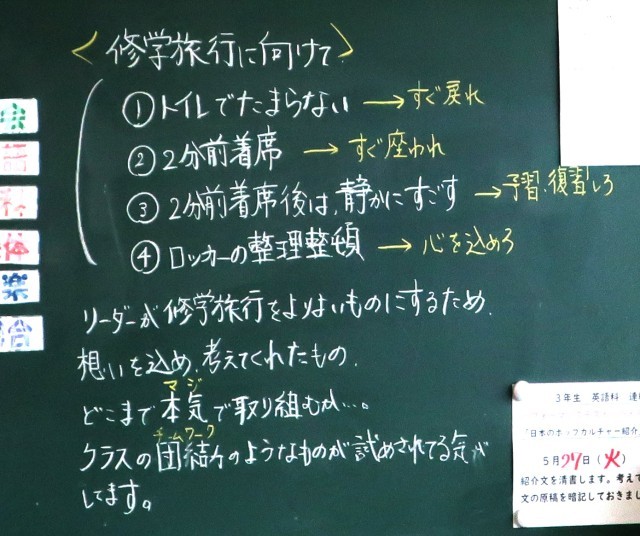 <修学旅行に向けて>
①トイレでたまらない → すぐ戻れ
②2分前着席 → すぐ座われ
③2分前着席後は、静かにすごす → 予習、復習しろ
④ロッカーの整理整頓 → 心を込めろ
リーダーが修学旅行をよりよいものにするため、
想いを込め、考えてくれたもの。
マジ
どこまで本気で取り組むか…。
チームワーク
クラスの団結力のようなものが試めされてる気が
してます。
楽
3年生 英語科 連
「日本のポップカルチャー紹介
5月27日(火)
紹介文を清書します。考えて
文の原稿を暗記しておきまし